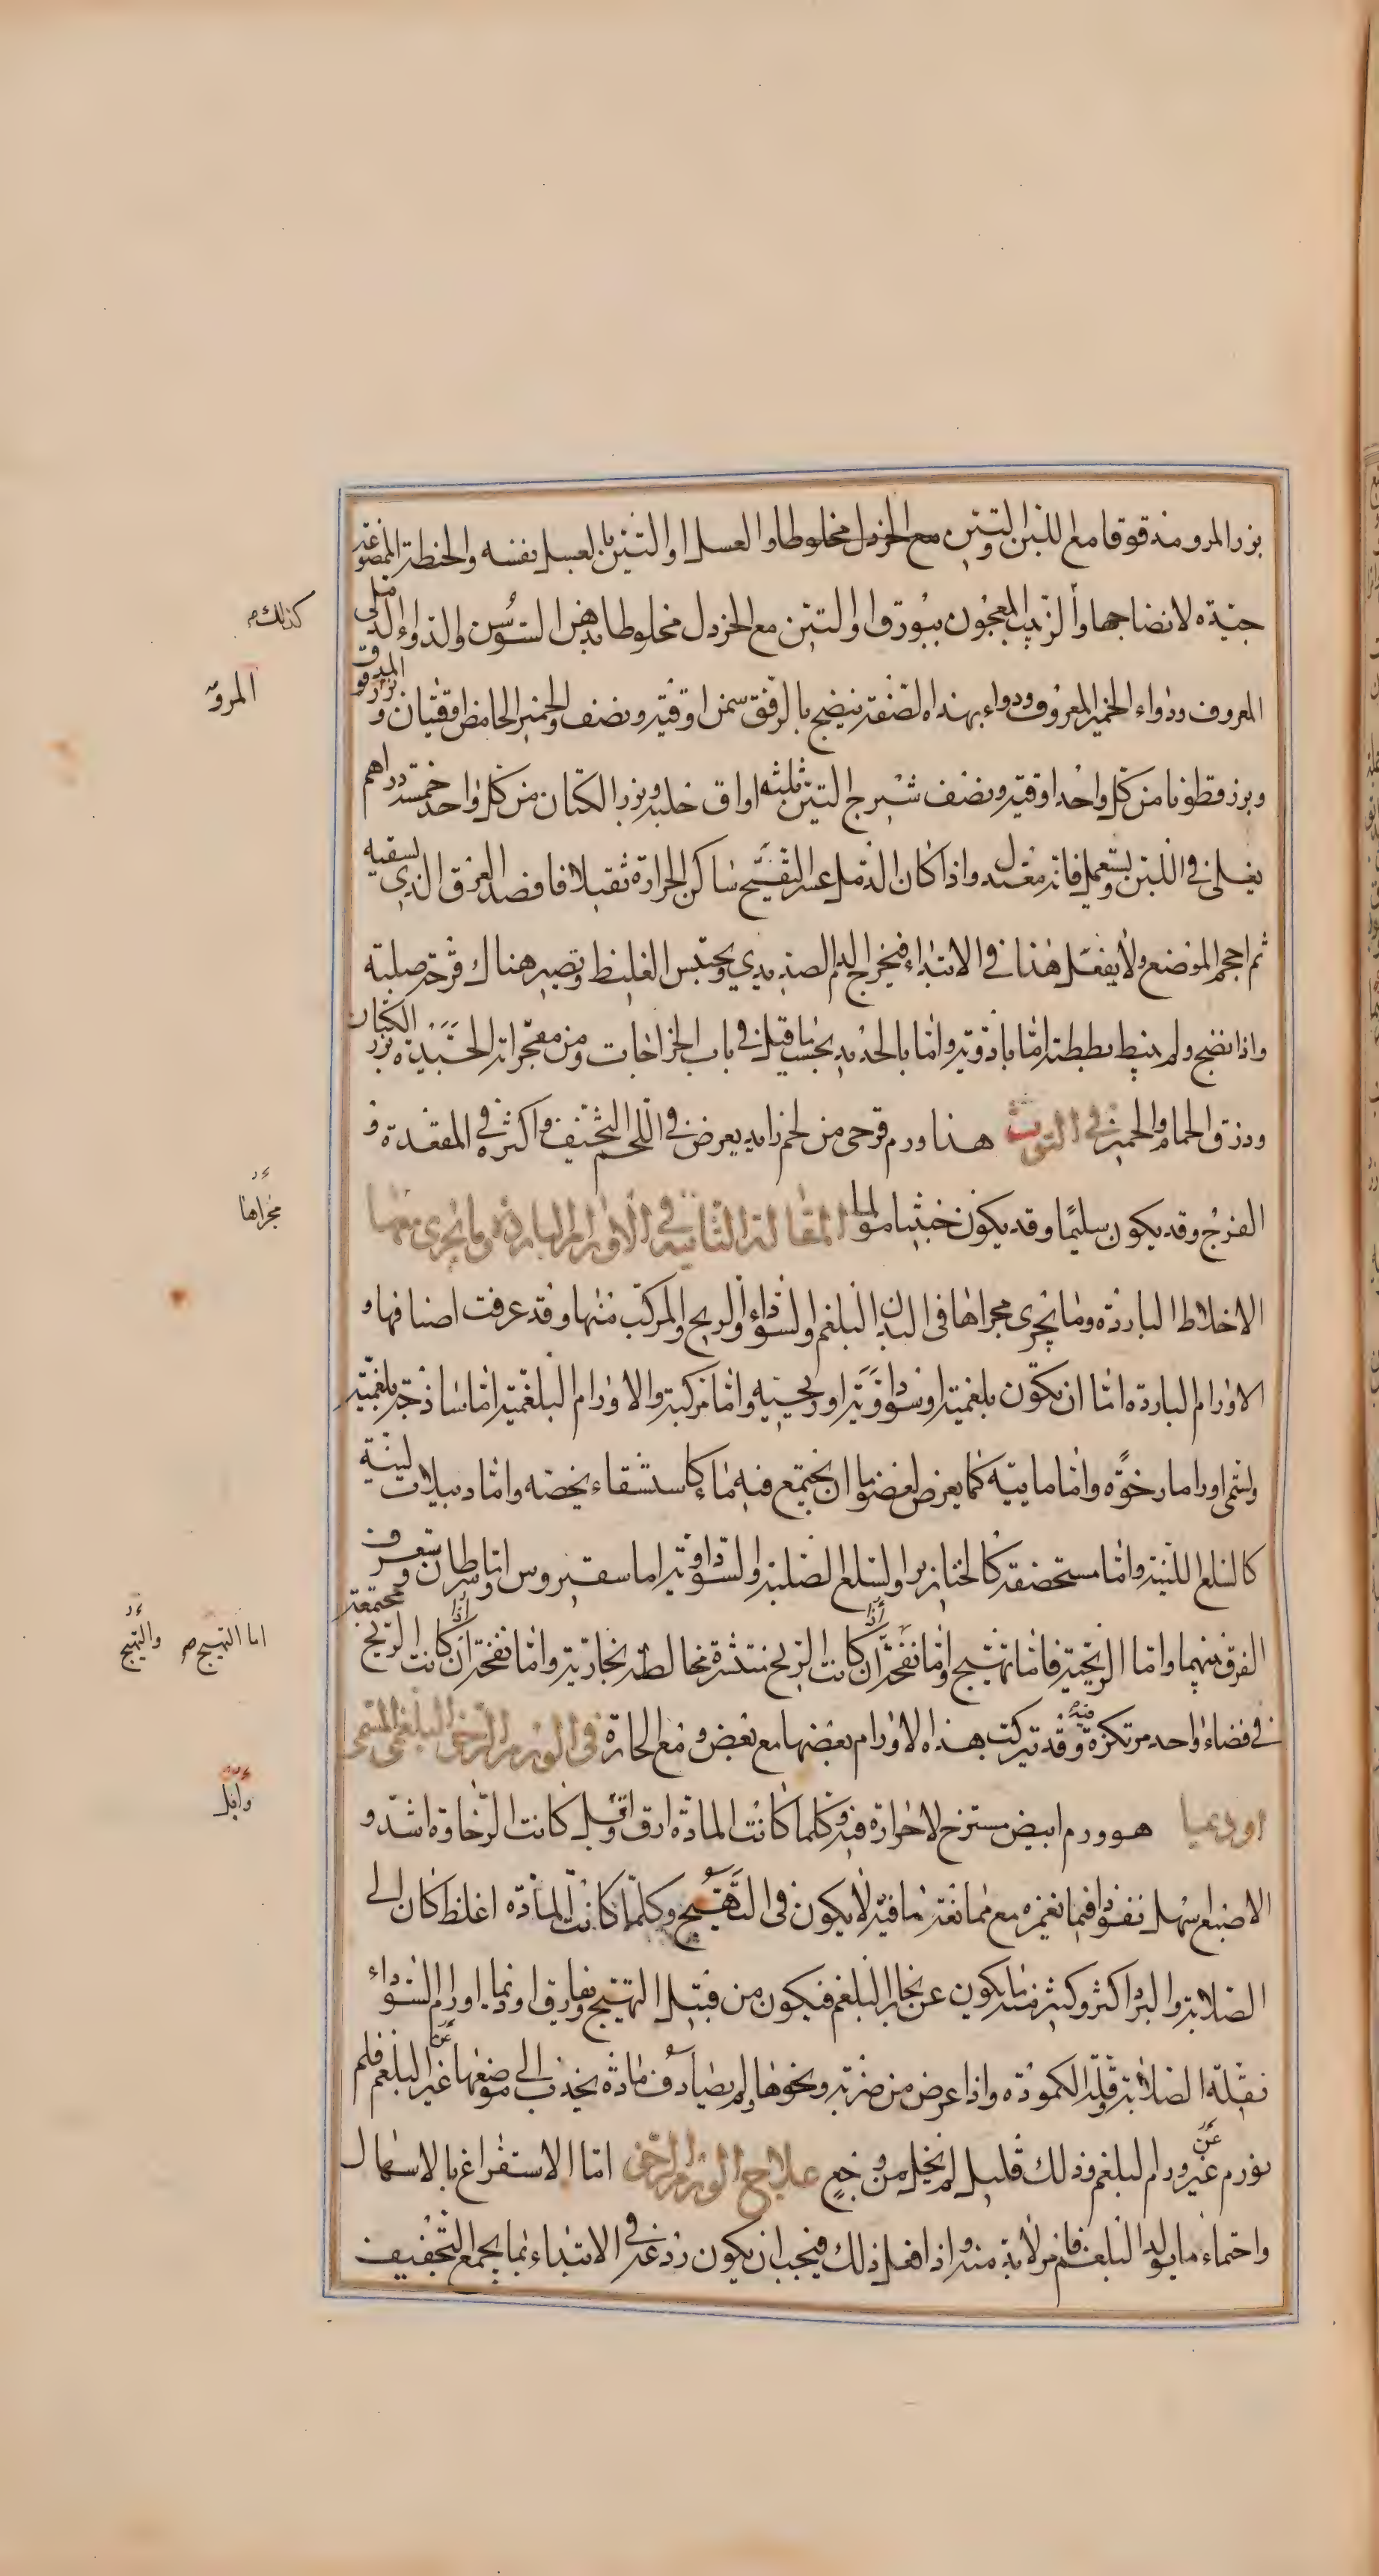 بزر المرو مدقوقا مع اللبن والتين مع الخردل مخلوطا والعسل او التين بالعسل نفسه والحنطة الممضوغة
جيدة لانضاجها وأ الزبيب المعجون ببورق او التين مع الخردل مخلوطا بدهن السوسن والدواء الدملى
المعروف ودواء الخمير المعروف ودواء بهذه الصفة ينضج بالرفق سمن اوقية ونصف والخمير الحامض اوقيتان وبزر المدقوق
وبزر قطونا من كل واحد اوقية ونصف شيرج التين ثلثه اواق حلبة وبزر الكتان من كل واحد خمسة دراهم
يغلى في اللبن ويستعمل فانه معتدل واذا كان الدمل عسر التقيح ساكن الحرارة ثقيلا فافصد العرق الذي يسقيه
ثم احجم الموضع ولا يفعل هذا في الابتداء فيخرج الدم الصديدي ويحتبس الغليظ وتصير هناك قرحة صلبة
واذا نضج ولم ينبط بططته اما بادوية واما بالحديد بحسب ما قيل في باب الخراجات ومن مفجراته الجيدة بزر الكتان
وذرق الحمام والخمير في التوث هذا ورم قرحى من لحم زايد يعرض في اللحم السخيف واكثره في المقعدة و
الفرج وقد يكون سليما وقد يكون خبيثا مولما المقالة الثانية في الاورام الباردة وما يجرى معها
الاخلاط الباردة وما يجرى مجراها فى البدن البلغم والسوداء والريح والمركب منها وقد عرفت اصنافها و
الاورام الباردة اما ان تكون بلغمية او سوداوية او ريحية واما مركبة والاورام البلغمية اما ساذجة بلغمية
وتسمى اوراما رخوة واما مايية كما يعرض لعضو ما ان يجتمع فيه ماء كاستسقاء يخصه واما دبيلات لينة
كالسلع اللينة واما مستحصفة كالخنازير والسلع الصلبة والسوداوية اما سقيروس واما سرطان وستعرف
الفرق بينهما واما الريحية فاما تهيج واما نفخة ان كانت الريح منتشرة مخالطة بخارية واما نفخة ان كانت الريح مجتمعة
في فضاء واحد مرتكزة فيه وقد تتركب هذه الاورام بعضها مع بعض ومع الحارة فى الورم الرخى البلغمى المسمى
اوديميا هو ورم ابيض مسترخ لا حرارة فيه وكلما كانت المادة ارق واقبل كانت الرخاوة اشد و
الاصبع سهل نفوذا فيما تغمزه مع ممانعة ما فيه لا يكون فى التهيج وكلما كانت المادة اغلظ كان الى
الصلابة والبرد اكثر وكثير منه ما يكون عن بخار البلغم فيكون من قبيل التهيج ويفارق اوذيما اورام السوداء
بقلة الصلابة وقلة الكمودة واذا عرض من ضربة ونحوها ولم يصادف مادة يجذب الى موضعها غير البلغم فلم
يورم غير ورم البلغم وذلك قليل لم يخل من وجع علاج الورم الرخى اما الاستفراغ بالاسهال
واحتماء ما يولد البلغم فامر لا بد منه واذا فعل ذلك فيجب ان يكون ردعه في الابتداء بما يجمع التجفيف
كذلك
المرو
مجراها
اما التهيج
والتهيج
واقل